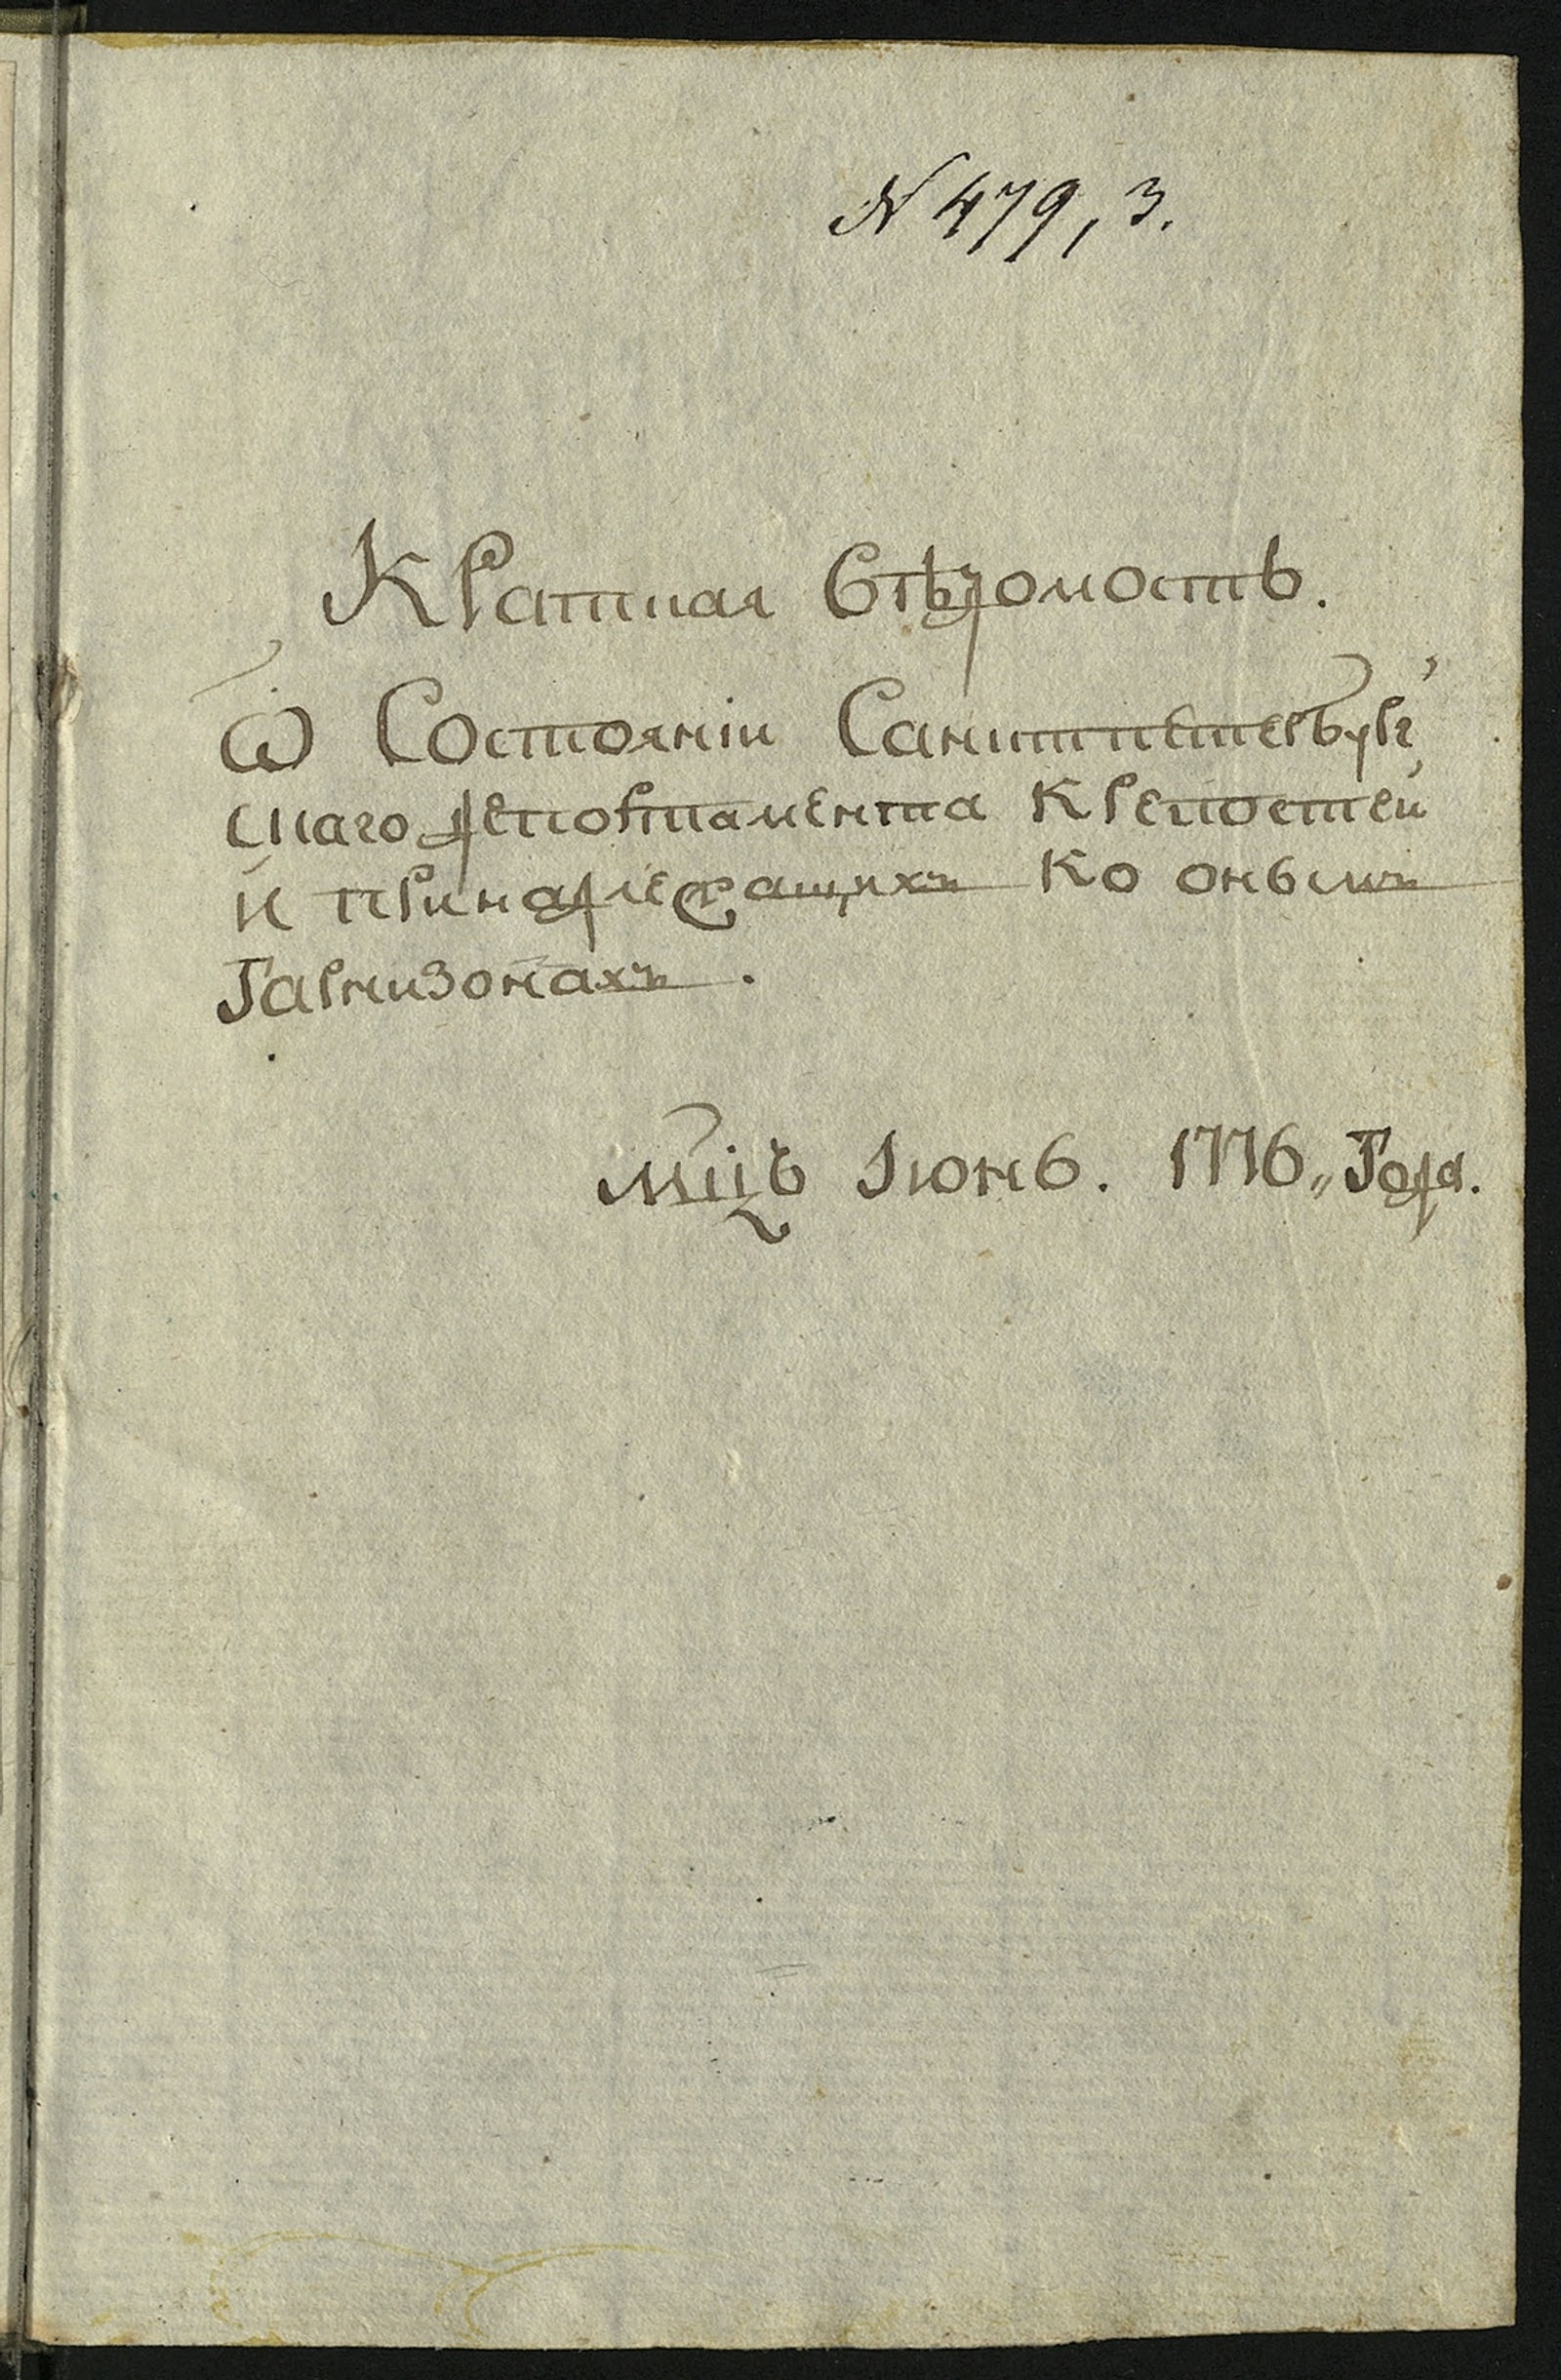 N 479, 3.
Краткая Вѣдомость.
Ѡ Состоянiи Санктпетербург
скаго депортамента Крепостей
и принадлежащихъ ко онымъ
Гарнизонахъ.
Мцъ Iюнь. 1776 „ Года.